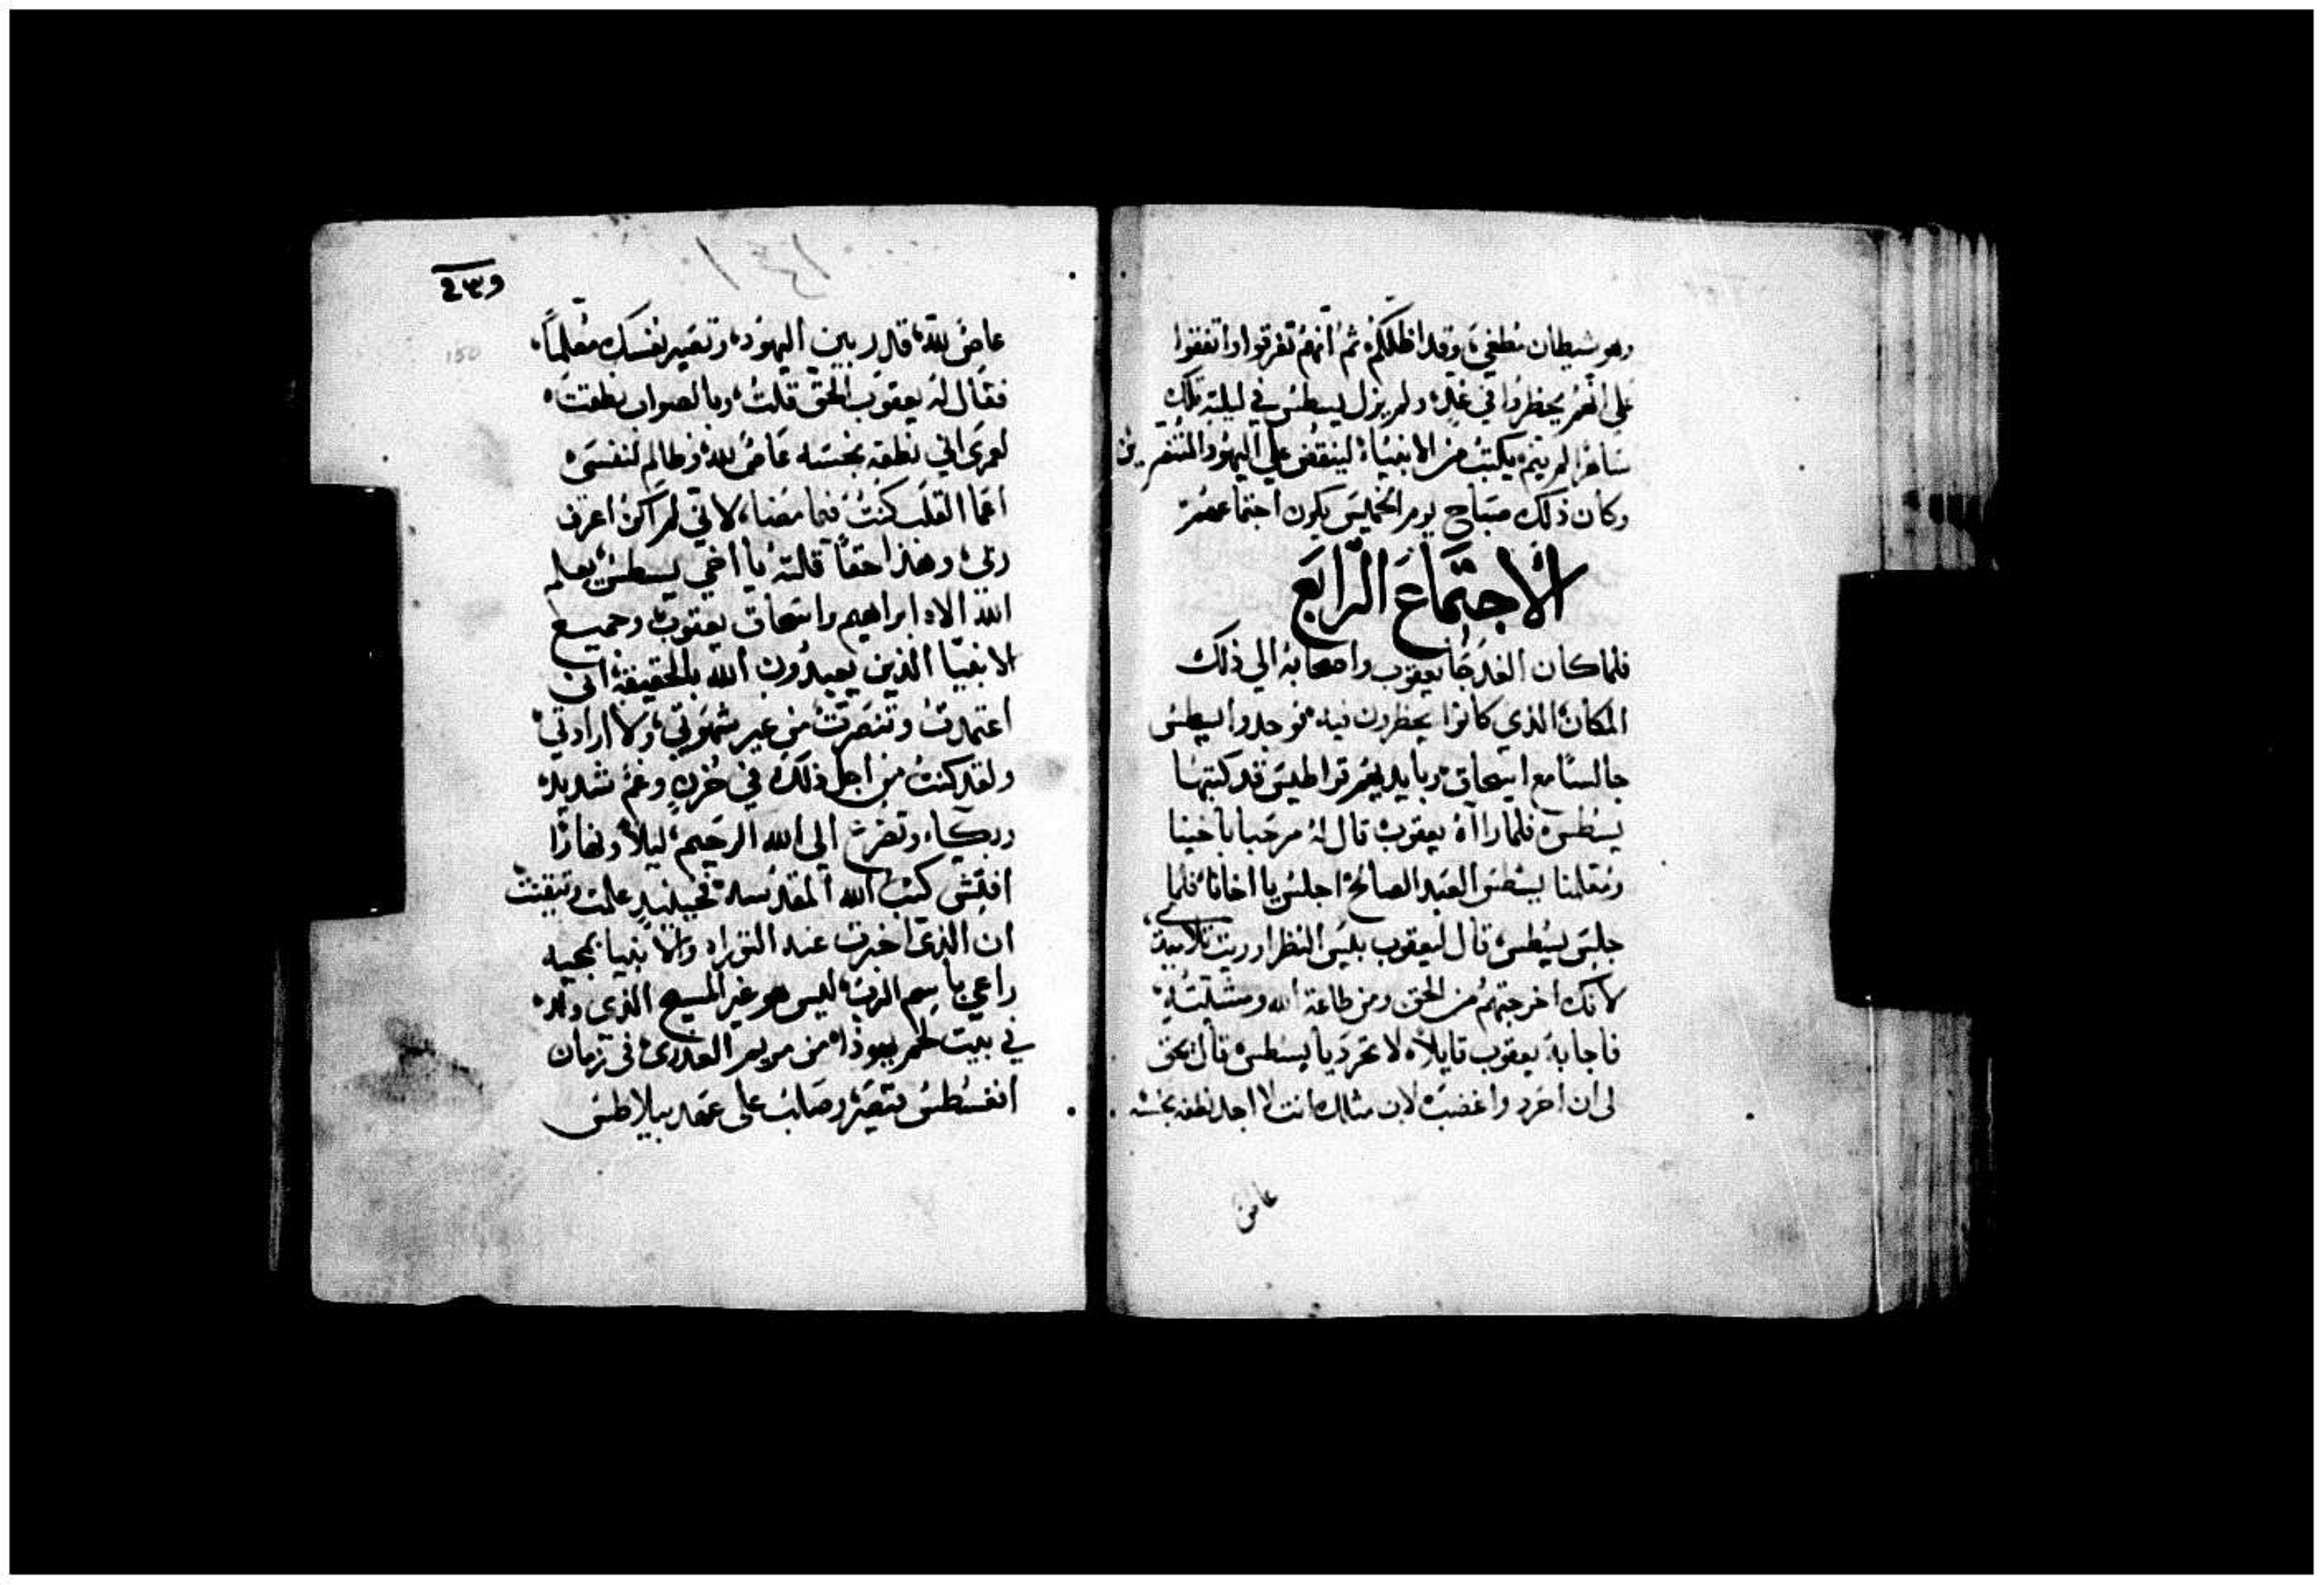 وهو شيطان مطغي، وقد اظلكم، ثم انهم تفرقوا واتفقوا
علي انهم يحظروا في غد، ولم يزل يسطس في ليلته تلك
ساهرا لم ينم، يكتب من الانبياء، لينقض علي اليهود المنتصرين
وكان ذلك صباح يوم الخميس يكون اجتماعهم
الاجتماع الرابع
فلما كان الغد جا يعقوب واصحابه الي ذلك
المكان، الذي كانوا يحظرون فيه، فوجدوا يسطس
جالسا مع اسحاق، وبايديهم قراطيس قد كتبها
يسطس، فلما راآه يعقوب، قال له مرحبا باخينا
ومعلمنا يسطس العبد الصالح، اجلس يا اخانا، فلما
جلس يسطس، قال ليعقوب بليس النظر اوريت تلاميد،
لانك اخرجتهم من الحق ومن طاعة الله ومشلته،
فاجابه يعقوب قايلا، لا تحرد يا يسطس، قال يحق
لي ان احرد واغضب، لان مثلك انت لا اجد نطفه نجسه
عاص
١٣١
150
عاص لله، قدر بين اليهود، وتصير نفسك معلما،
فقال له يعقوب الحق قلت، وبالصواب نطقت،
لعمري اني نطفه نجسه عاص لله، وظالم لنفسي،
اعما القلب كنت فيما مضا، لاني لم اكن اعرف
ربي، وهذا حقا قلته يا اخي يسطس، يعلم
الله الاه ابراهيم واسحاق يعقوب، وجميع
الانبيا الذين يعبدون الله بالحقيقه، اني
اعتمدت وتنصرت، من غير شهوتي، ولا ارادتي،
ولقد كنت من اجل ذلك، في حزن وغم شديد،
وبكاء، وتضرع الي الله الرحيم، ليلا ونهارا
افتش كتب الله المقدسه، فحينيد علمت وتيقنت
ان الذي اخبرت عنه التوراه والانبيا بمجيه
راعي باسم الرب، ليس هو غير المسيح الذي ولد،
في بيت لحم يهوذا، من مريم العدري، في زمان
اغسطس قيصر، وصلب علي عهد بيلاطس